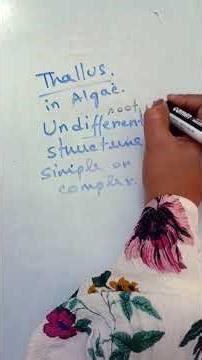 Thallus.
in Algae
root
Undifferen
structure
simple or
complex.